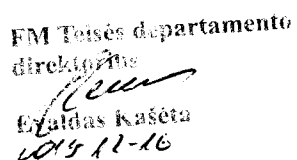 FM Teisės departamento
direktorius
Evaldas Kašėta
12-16